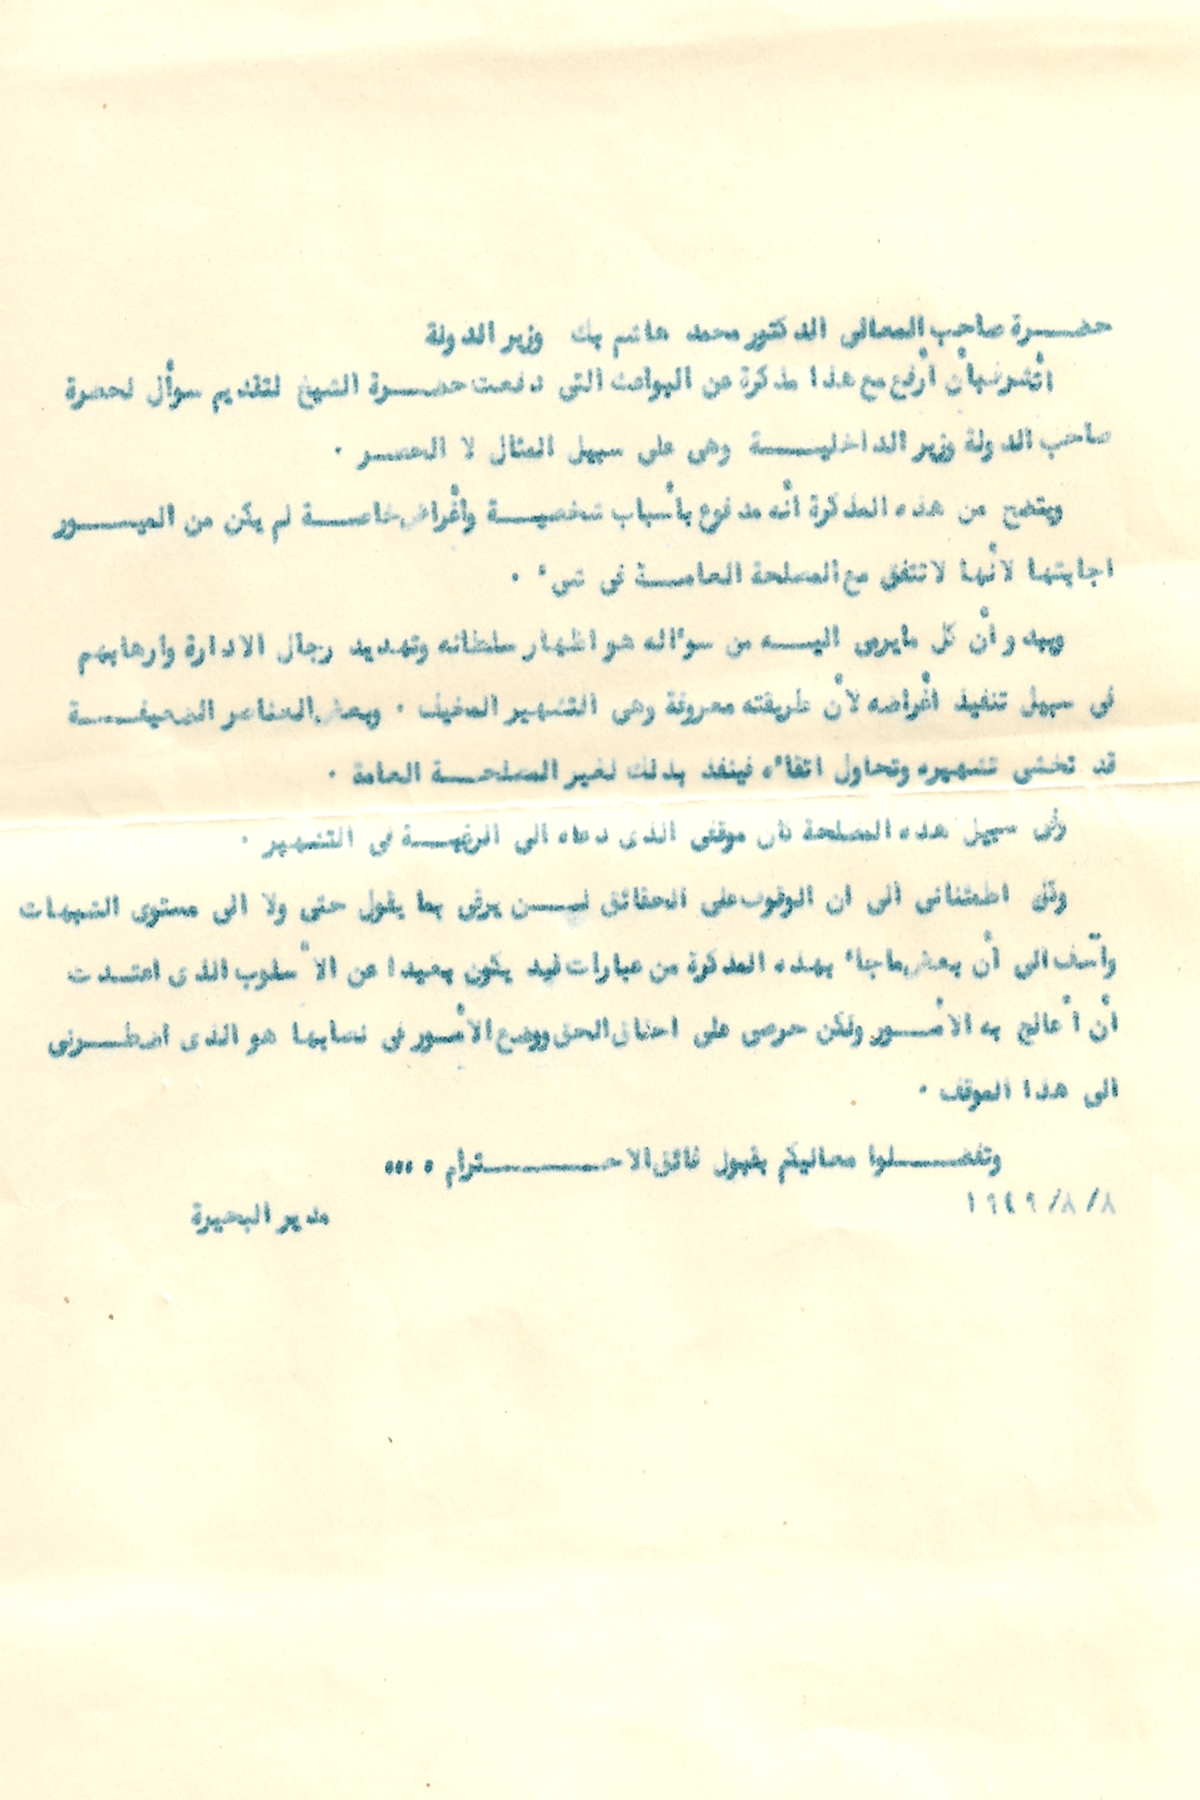 حضرة صاحب المعالى الدكتور محمد هاشم بك وزير الدولة
أتشرف بأن أرفع مع هذا مذكرة عن البواعث التى دفعت حضرة الشيخ لتقديم سوأل لحضرة
صاحب الدولة وزير الداخلية وهى على سبيل المثال لا الحصر ٠
ويتضح من هذه المذكرة أنه مدفوع بأسباب شخصية وأغراض خاصة لم يكن من الميسور
اجابتها لأنها لا تتفق مع المصلحة العامة فى شىء ٠
ويبدو أن كل مايرمى اليه من سوءاله هو اظهار سلطانه وتهديد رجال الادارة وارهابهم
فى سبيل تنفيذ أغراضه لأن طريقته معروفة وهى التشهير المخيف ٠ وبعض العناصر الضعيفة
قد تخشى تشهيره وتحاول اتقاءه فينفذ بذلك لغير المصلحة العامة ٠
وفى سبيل هذه المصلحة كان موقفى الذى دعاه الى الرغبة فى التشهير ٠
وكل اطمئنانى الى ان الوقوف على الحقائق ليس يرقى بما يقول حتى ولا الى مستوى الشبهات
وآسف الى أن بعض ماجاء بهذه المذكرة من عبارات قد يكون بعيدا عن الأسلوب الذى اعتدت
أن أعالج به الأمور ولكن حرصى على احقاق الحق ووضع الأمور فى نصابها هو الذى اضطرنى
الى هذا الموقف ٠
وتفضلوا معاليكم بقبول فائق الاحترام ٠٠٠٠
٨/ ٨/ ١٩٤٩
مدير البحيرة